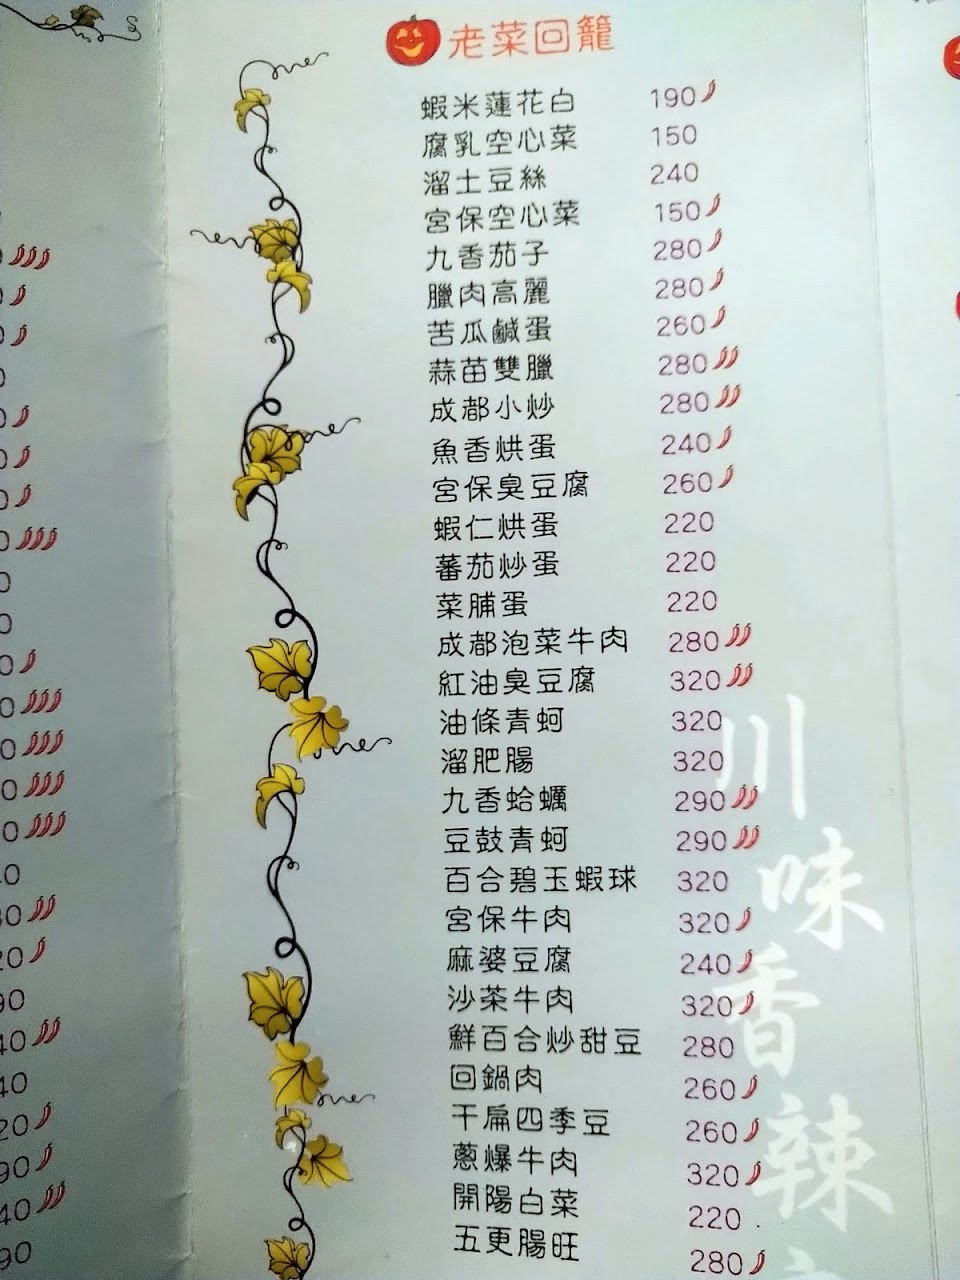 老菜回籠
蝦米蓮花白 190
腐乳空心菜 150
溜土豆絲 240
宮保空心菜 150
九香茄子 280
臘肉高麗 280
苦瓜鹹蛋 260
蒜苗雙臘 280
成都小炒 280
魚香烘蛋 240
宮保臭豆腐 260
蝦仁烘蛋 220
蕃茄炒蛋 220
菜脯蛋 220
成都泡菜牛肉 280
紅油臭豆腐 320
油條青蚵 320
溜肥腸 320
九香蛤蠣 290
豆鼓青蚵 290
百合碧玉蝦球 320
宮保牛肉 320
麻婆豆腐 240
沙茶牛肉 320
鮮百合炒甜豆 280
回鍋肉 260
干扁四季豆 260
蔥爆牛肉 320
開陽白菜 220
五更腸旺 280
川味香辣